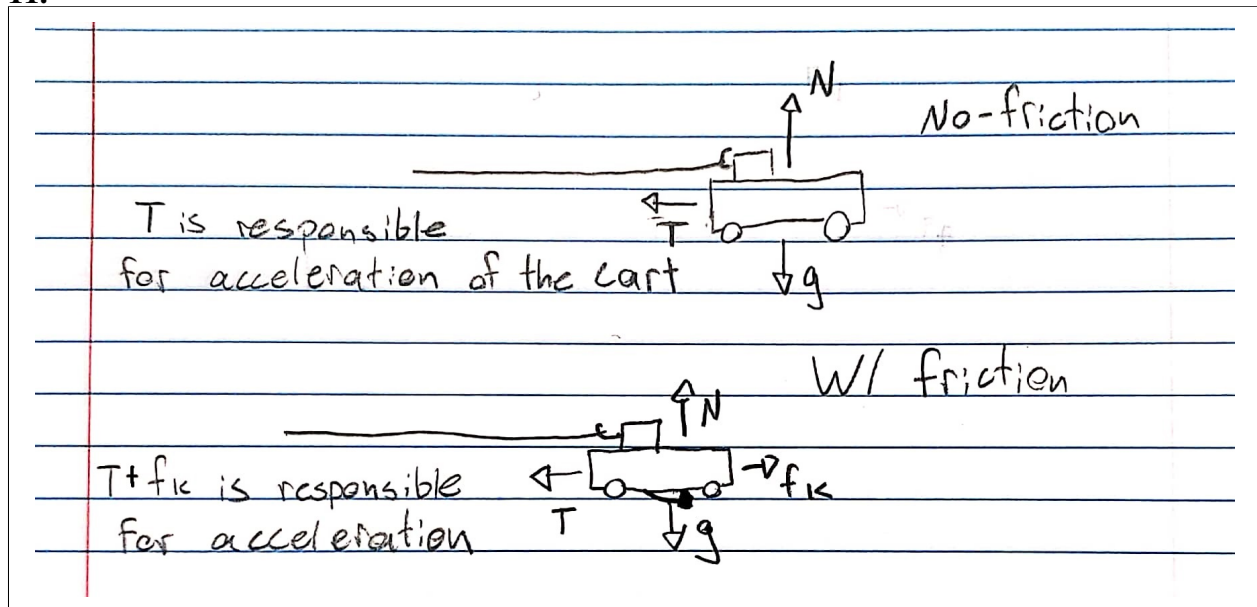 11.
N
No-friction
T is responsible
T
for acceleration of the cart
g
W/ friction
N
T+fk is responsible
fk
T
for acceleration
g